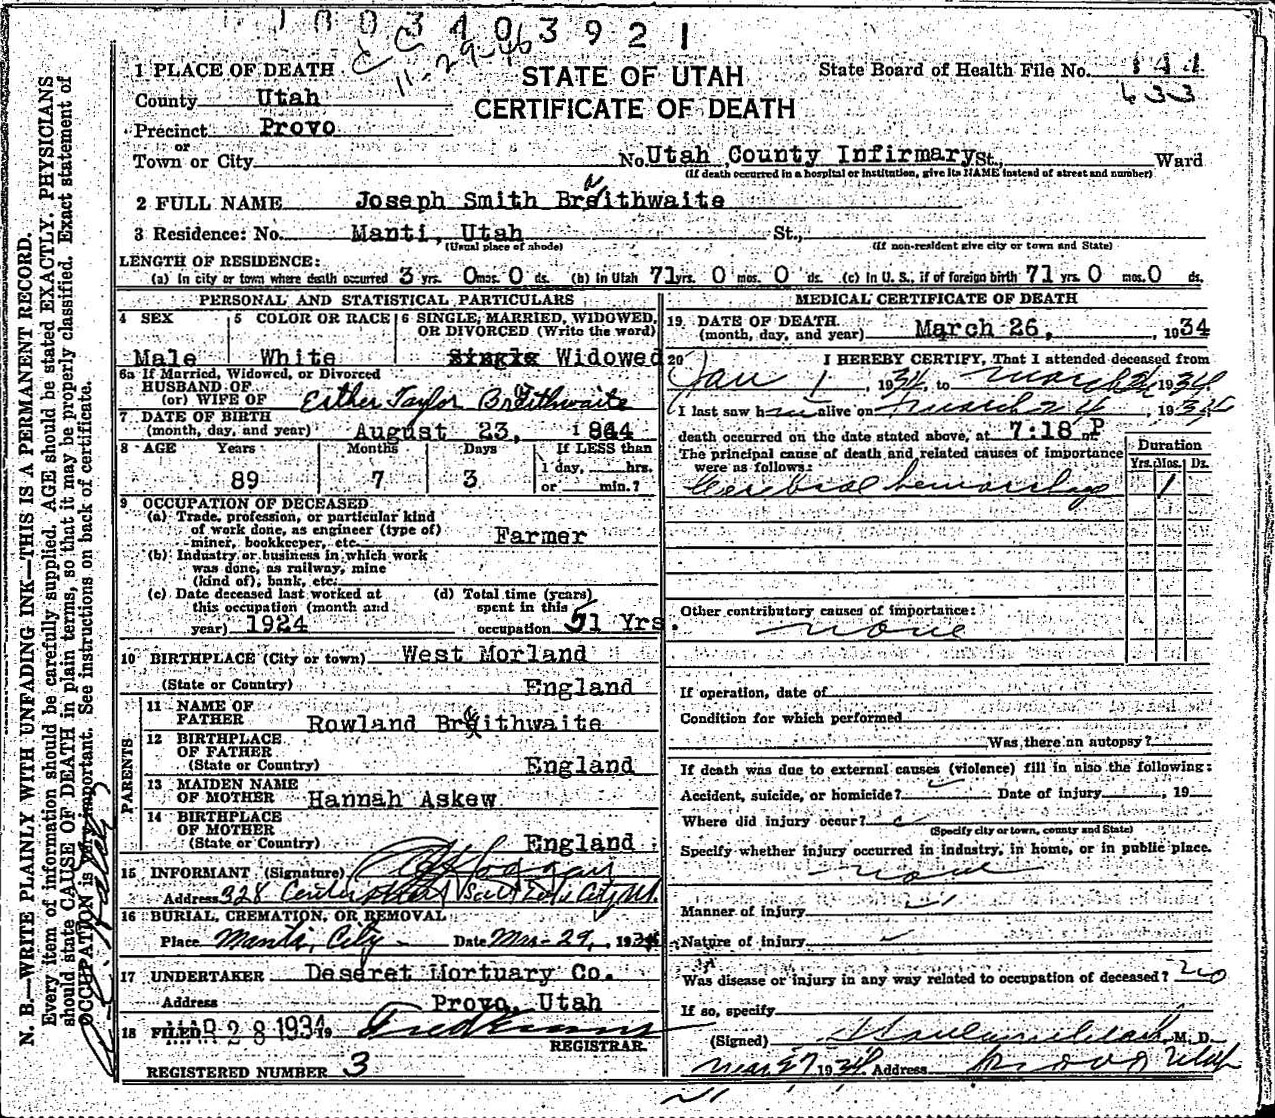 1003403921
11-29-46
1 PLACE OF DEATH
STATE OF UTAH
CERTIFICATE OF DEATH
State Board of Health File No. 144
633
County Utah
Precinct Provo
or
Town or City No. Utah County Infirmary St., Ward
(If death occurred in a hospital or institution, give its NAME instead of street and number)
2 FULL NAME Joseph Smith Braithwaite
3 Residence: No. Manti, Utah St.,
(Usual place of abode) (If non-resident give city or town and State)
LENGTH OF RESIDENCE:
(a) In city or town where death occurred 3 yrs. 0 mos. 0 ds. (b) in Utah 71 yrs. 0 mos. 0 ds. (c) in U. S., if of foreign birth 71 yrs. 0 mos. 0 ds.
PERSONAL AND STATISTICAL PARTICULARS
4 SEX
Male
5 COLOR OR RACE
White
6 SINGLE, MARRIED, WIDOWED, OR DIVORCED (Write the word)
Single Widowed
6a If Married, Widowed, or Divorced
HUSBAND OF
(or) WIFE OF Esther Taylor Braithwaite
7 DATE OF BIRTH
(month, day, and year) August 23, 1844
8 AGE Years Months Days If LESS than
1 day, hrs.
89 7 3 or min.?
9 OCCUPATION OF DECEASED
(a) Trade, profession, or particular kind
of work done, as engineer (type of)
miner, bookkeeper, etc. Farmer
(b) Industry or business in which work
was done, as railway, mine
(kind of), bank, etc.
(c) Date deceased last worked at
this occupation (month and
year) 1924
(d) Total time (years)
spent in this
occupation 51 Yrs.
10 BIRTHPLACE (City or town) West Morland
(State or Country) England
PARENTS
11 NAME OF
FATHER Rowland Braithwaite
12 BIRTHPLACE
OF FATHER
(State or Country) England
13 MAIDEN NAME
OF MOTHER Hannah Askew
14 BIRTHPLACE
OF MOTHER
(State or Country) England
15 INFORMANT (Signature)
Address 328 Center Street Salt Lake City Ut.
16 BURIAL, CREMATION, OR REMOVAL
Place Manti, City Date Mar-29, 1934
17 UNDERTAKER Deseret Mortuary Co.
Address Provo, Utah
18 FILED MAR 28 1934 19
REGISTRAR
REGISTERED NUMBER 3
MEDICAL CERTIFICATE OF DEATH
19 DATE OF DEATH
(month, day, and year) March 26, 1934
20 I HEREBY CERTIFY, That I attended deceased from
Jan 1, 1934, to March 26 1934
I last saw him alive on March 26, 1934
death occurred on the date stated above, at 7:18 P m
The principal cause of death and related causes of importance
were as follows:
Duration
Yrs. Mos. Ds.
Cerebral hemorrhage 1
Other contributory causes of importance:
none
If operation, date of
Condition for which performed
Was there an autopsy?
If death was due to external causes (violence) fill in also the following:
Accident, suicide, or homicide? Date of injury , 19
Where did injury occur?
(Specify city or town, county and State)
Specify whether injury occurred in industry, in home, or in public place.
none
Manner of injury
Nature of injury
Was disease or injury in any way related to occupation of deceased? no
If so, specify
(Signed) M. D.
Mar 27 1934 Address Provo Utah
N. B.—WRITE PLAINLY WITH UNFADING INK—THIS IS A PERMANENT RECORD.
Every item of information should be carefully supplied. AGE should be stated EXACTLY. PHYSICIANS
should state CAUSE OF DEATH in plain terms, so that it may be properly classified. Exact statement of
OCCUPATION is very important. See instructions on back of certificate.